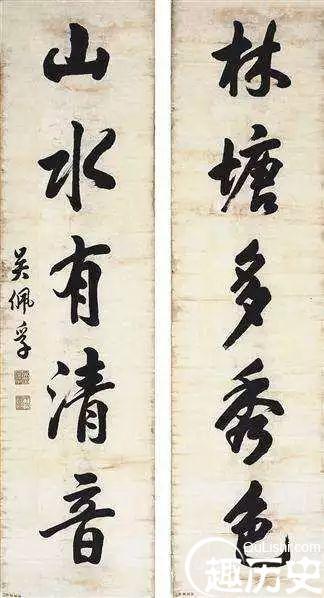 林塘多秀色
山水有清音
吴佩孚
QuLishi.com
趣历史